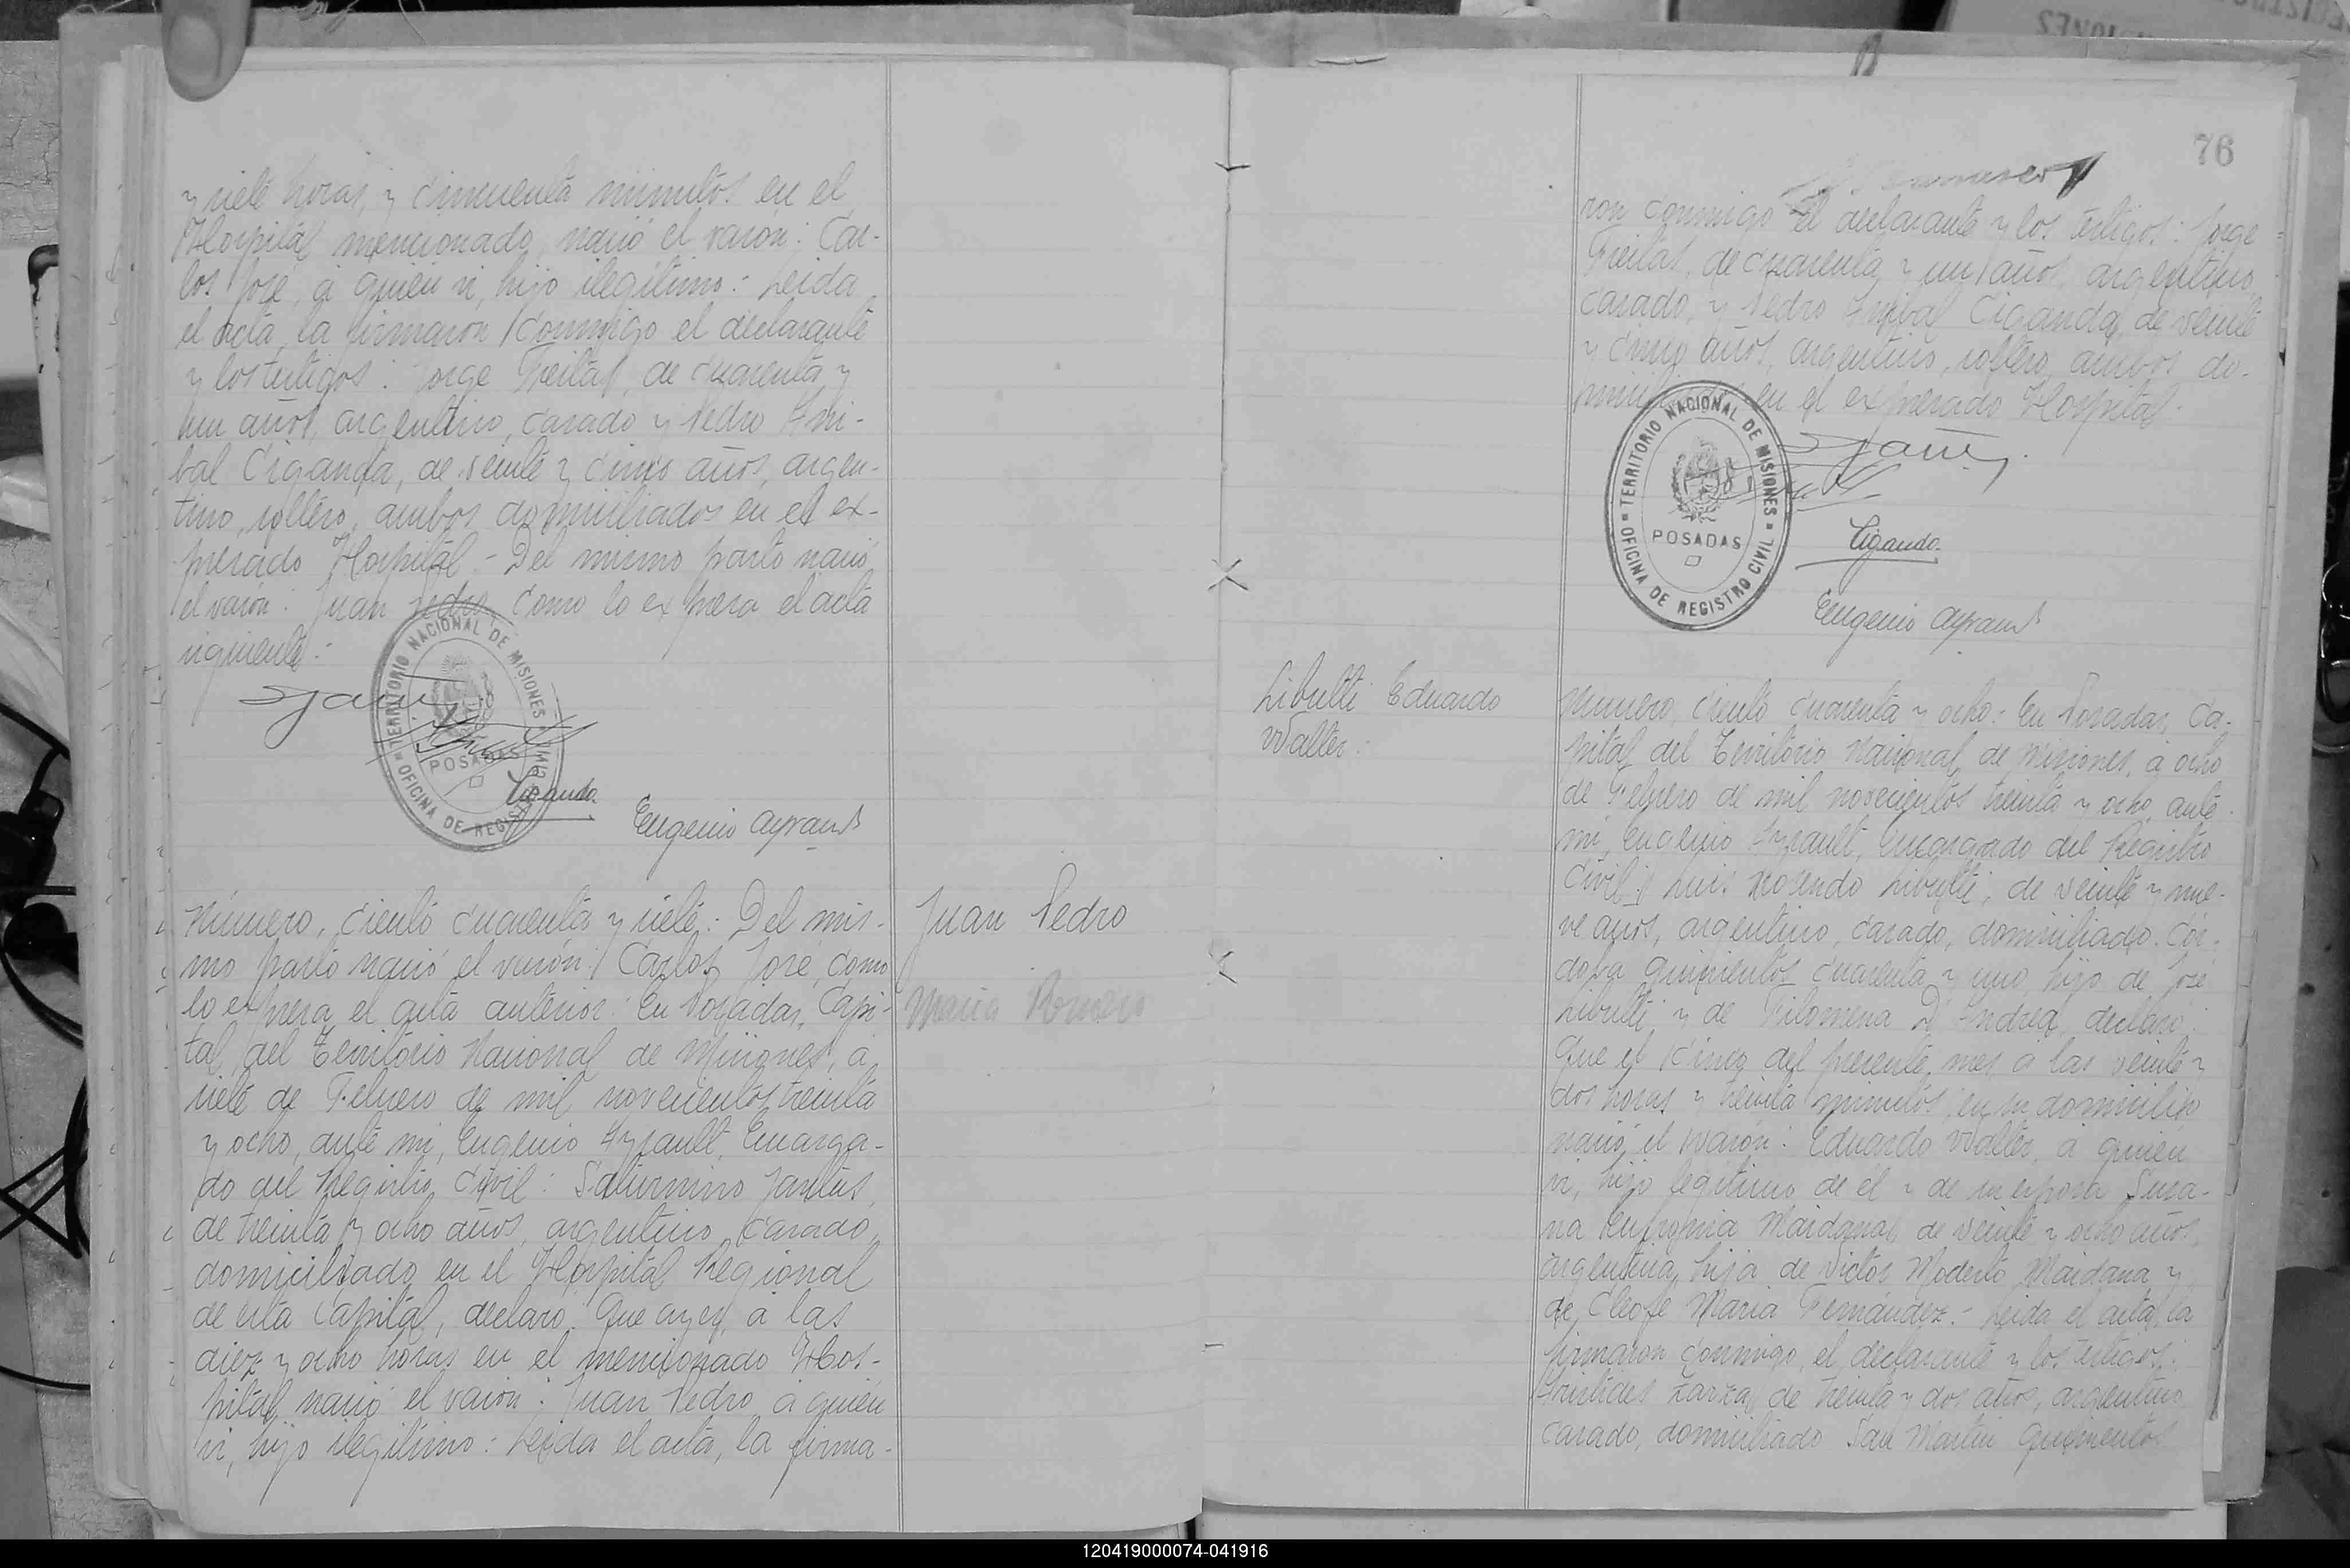 y siete horas, y cincuenta minutos en el
Hospital mencionado, nació el varón: Car-
los José, á quien vi, hijo ilegítimo: Leida
el acta, la firmaron conmigo el declarante
y los testigos: Jorge Freitas, de cuarenta y
un años, argentino, casado y Pedro Ani-
bal Ciganda, de veinte y cinco años, argen-
tino, soltero, ambos domiciliados en el ex-
presado Hospital.- Del mismo parto nació
el varón: Juan Pedro, como lo expresa el acta
siguiente:-
TERRITORIO NACIONAL DE MISIONES
POSADAS
OFICINA DE REGISTRO CIVIL
Ciganda.
Eugenio Ayrault
Número, ciento cuarenta y siete: Del mis-
mo parto nació el varón: Carlos José, como
lo expresa el acta anterior: En Posadas, Capi-
tal del Territorio Nacional de Misiones, á
siete de Febrero de mil novecientos treinta
y ocho, ante mi, Eugenio Ayrault, Encarga-
do del Registro Civil: Saturnino
de treinta y ocho años, argentino, casado,
domiciliado en el Hospital Regional
de esta Capital, declaró: Que ayer, á las
diez y ocho horas en el mencionado Hos-
pital, nació el varón: Juan Pedro, á quien
vi, hijo ilegítimo: Leida el acta, la firma-
Juan Pedro
Maria Romero
76
ron conmigo el declarante y los testigos: Jorge
Freitas, de cuarenta y un años, argentino,
casado, y Pedro Anibal Ciganda, de veinte
y cinco años, argentino, soltero, ambos do-
miciliados en el expresado Hospital.-
TERRITORIO NACIONAL DE MISIONES
POSADAS
OFICINA DE REGISTRO CIVIL
Ciganda.
Eugenio Ayrault
Libutti Eduardo
Walter:
Número, ciento cuarenta y ocho: En Posadas, Ca-
pital del Territorio Nacional de Misiones, á ocho
de Febrero de mil novecientos treinta y ocho, ante
mi, Eugenio Ayrault, Encargado del Registro
Civil: Luis Rosendo Libutti, de veinte y nue-
ve años, argentino, casado, domiciliado Cór-
dova quinientos cuarenta y uno, hijo de José
Libutti y de Filomena D'Andrea, declaró:
Que el cinco del presente mes á las veinte y
dos horas y treinta minutos, en su domicilio
nació el varón: Eduardo Walter, á quien
vi, hijo legítimo de él y de su esposa Susa-
na Eufrosia Maidana, de veinte y ocho años,
argentina, hija de Victor Modesto Maidana y
de Cleofe Maria Fernández.- Leida el acta, la
firmaron conmigo, el declarante y los testigos:
Aristides Zarza, de treinta y dos años, argentino,
casado, domiciliado San Martin quinientos
120419000074-041916